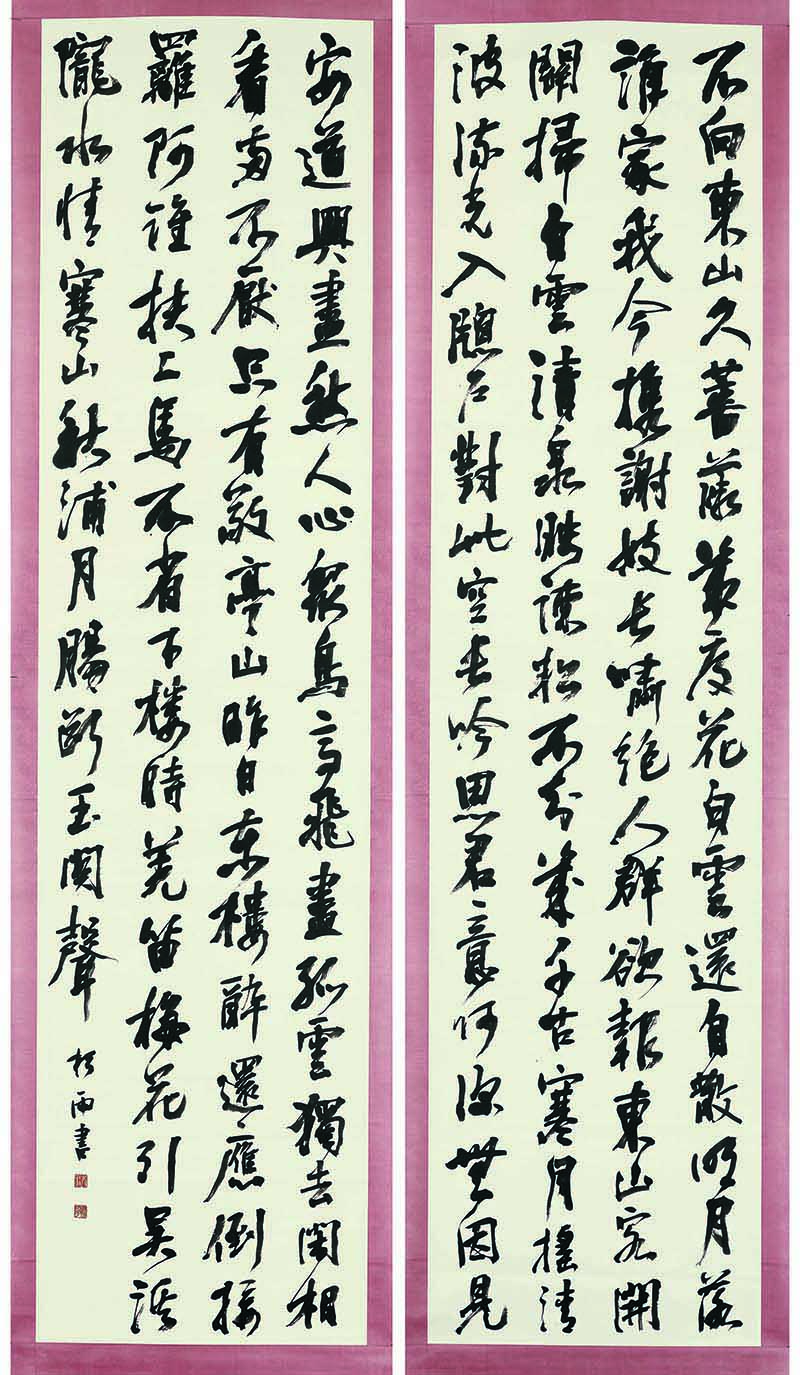 不向東山久薔薇幾度花白雲還自散明月落
誰家我今攜謝妓長嘯絕人群欲報東山客開
關掃白雲清泉映疎松不知幾千古寒月搖清
波流光入牕戶對此空長吟思君意何深無因見
安道興盡愁人心眾鳥高飛盡孤雲獨去閑相
看兩不厭只有敬亭山昨日東樓醉還應倒接
羅阿誰扶上馬不省下樓時羌笛梅花引吳溪
隴水情寒山秋浦月腸斷玉關聲
雨書